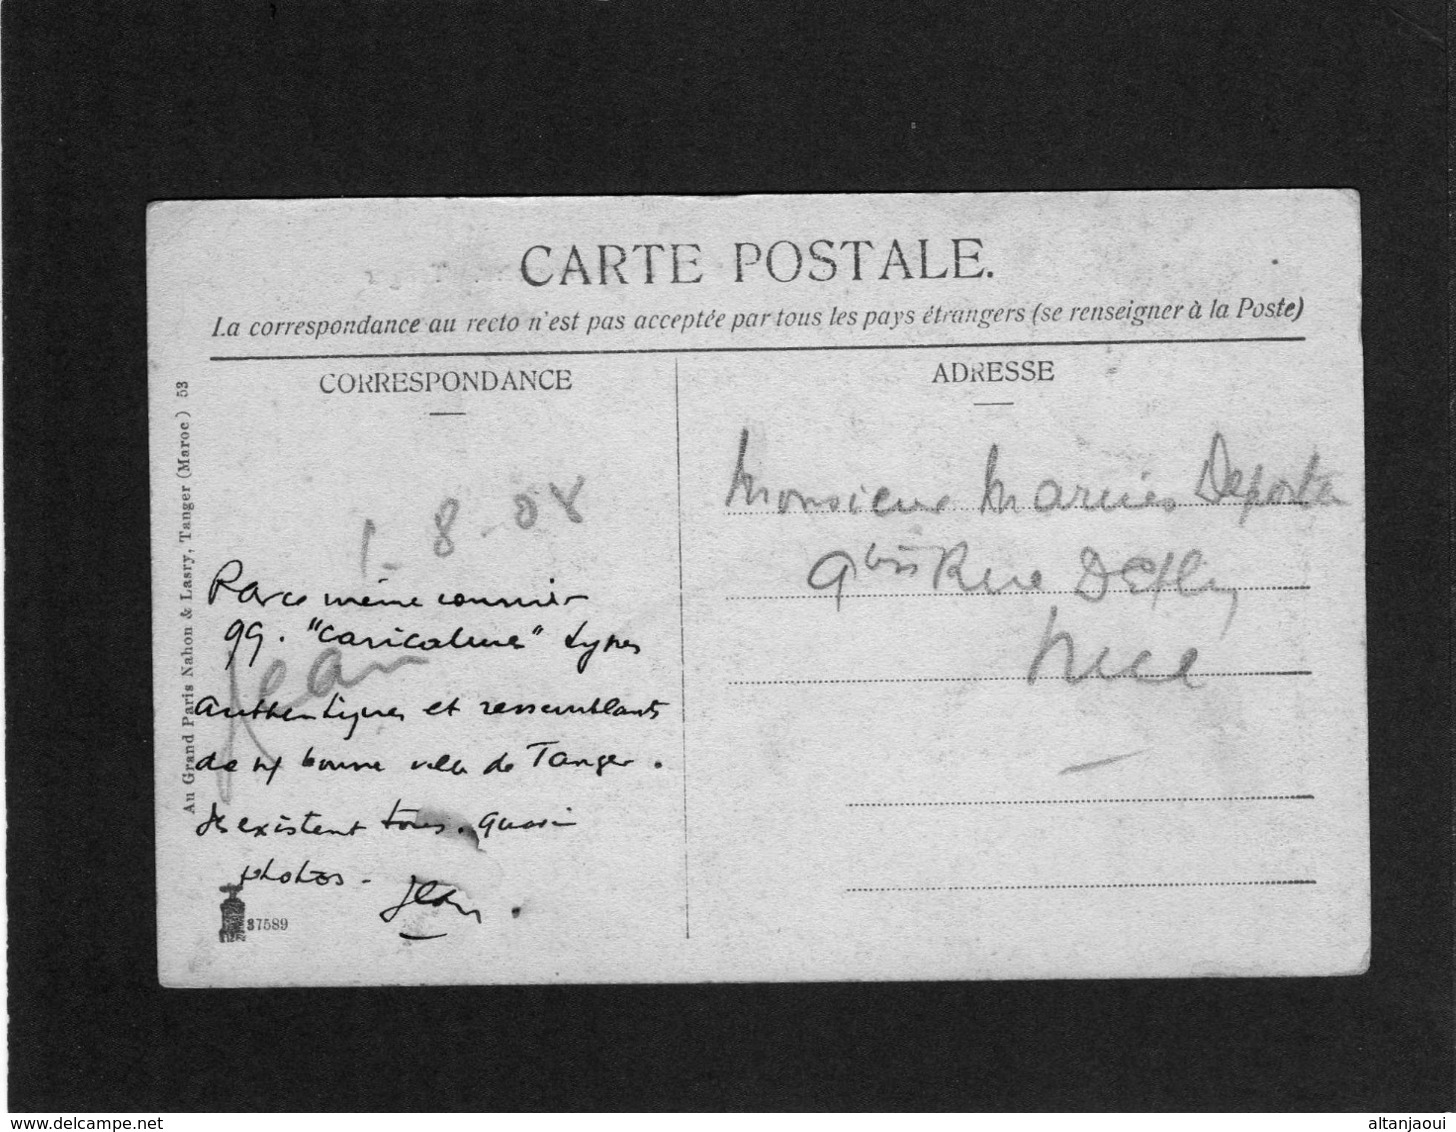 CARTE POSTALE.
La correspondance au recto n'est pas acceptée par tous les pays étrangers (se renseigner à la Poste)
CORRESPONDANCE
1-8-08
Par ce même courrier
99. "Caricatures" types
Jean
authentiques et ressemblants
de n/ bonne ville de Tanger.
Ils existent tous. Quasi
photos-
Jean.
37589
Au Grand Paris Nahon & Lasry, Tanger (Maroc) 53
ADRESSE
Monsieur Marius
9 bis Rue Defly
Nice
www.delcampe.net
altanjaoui